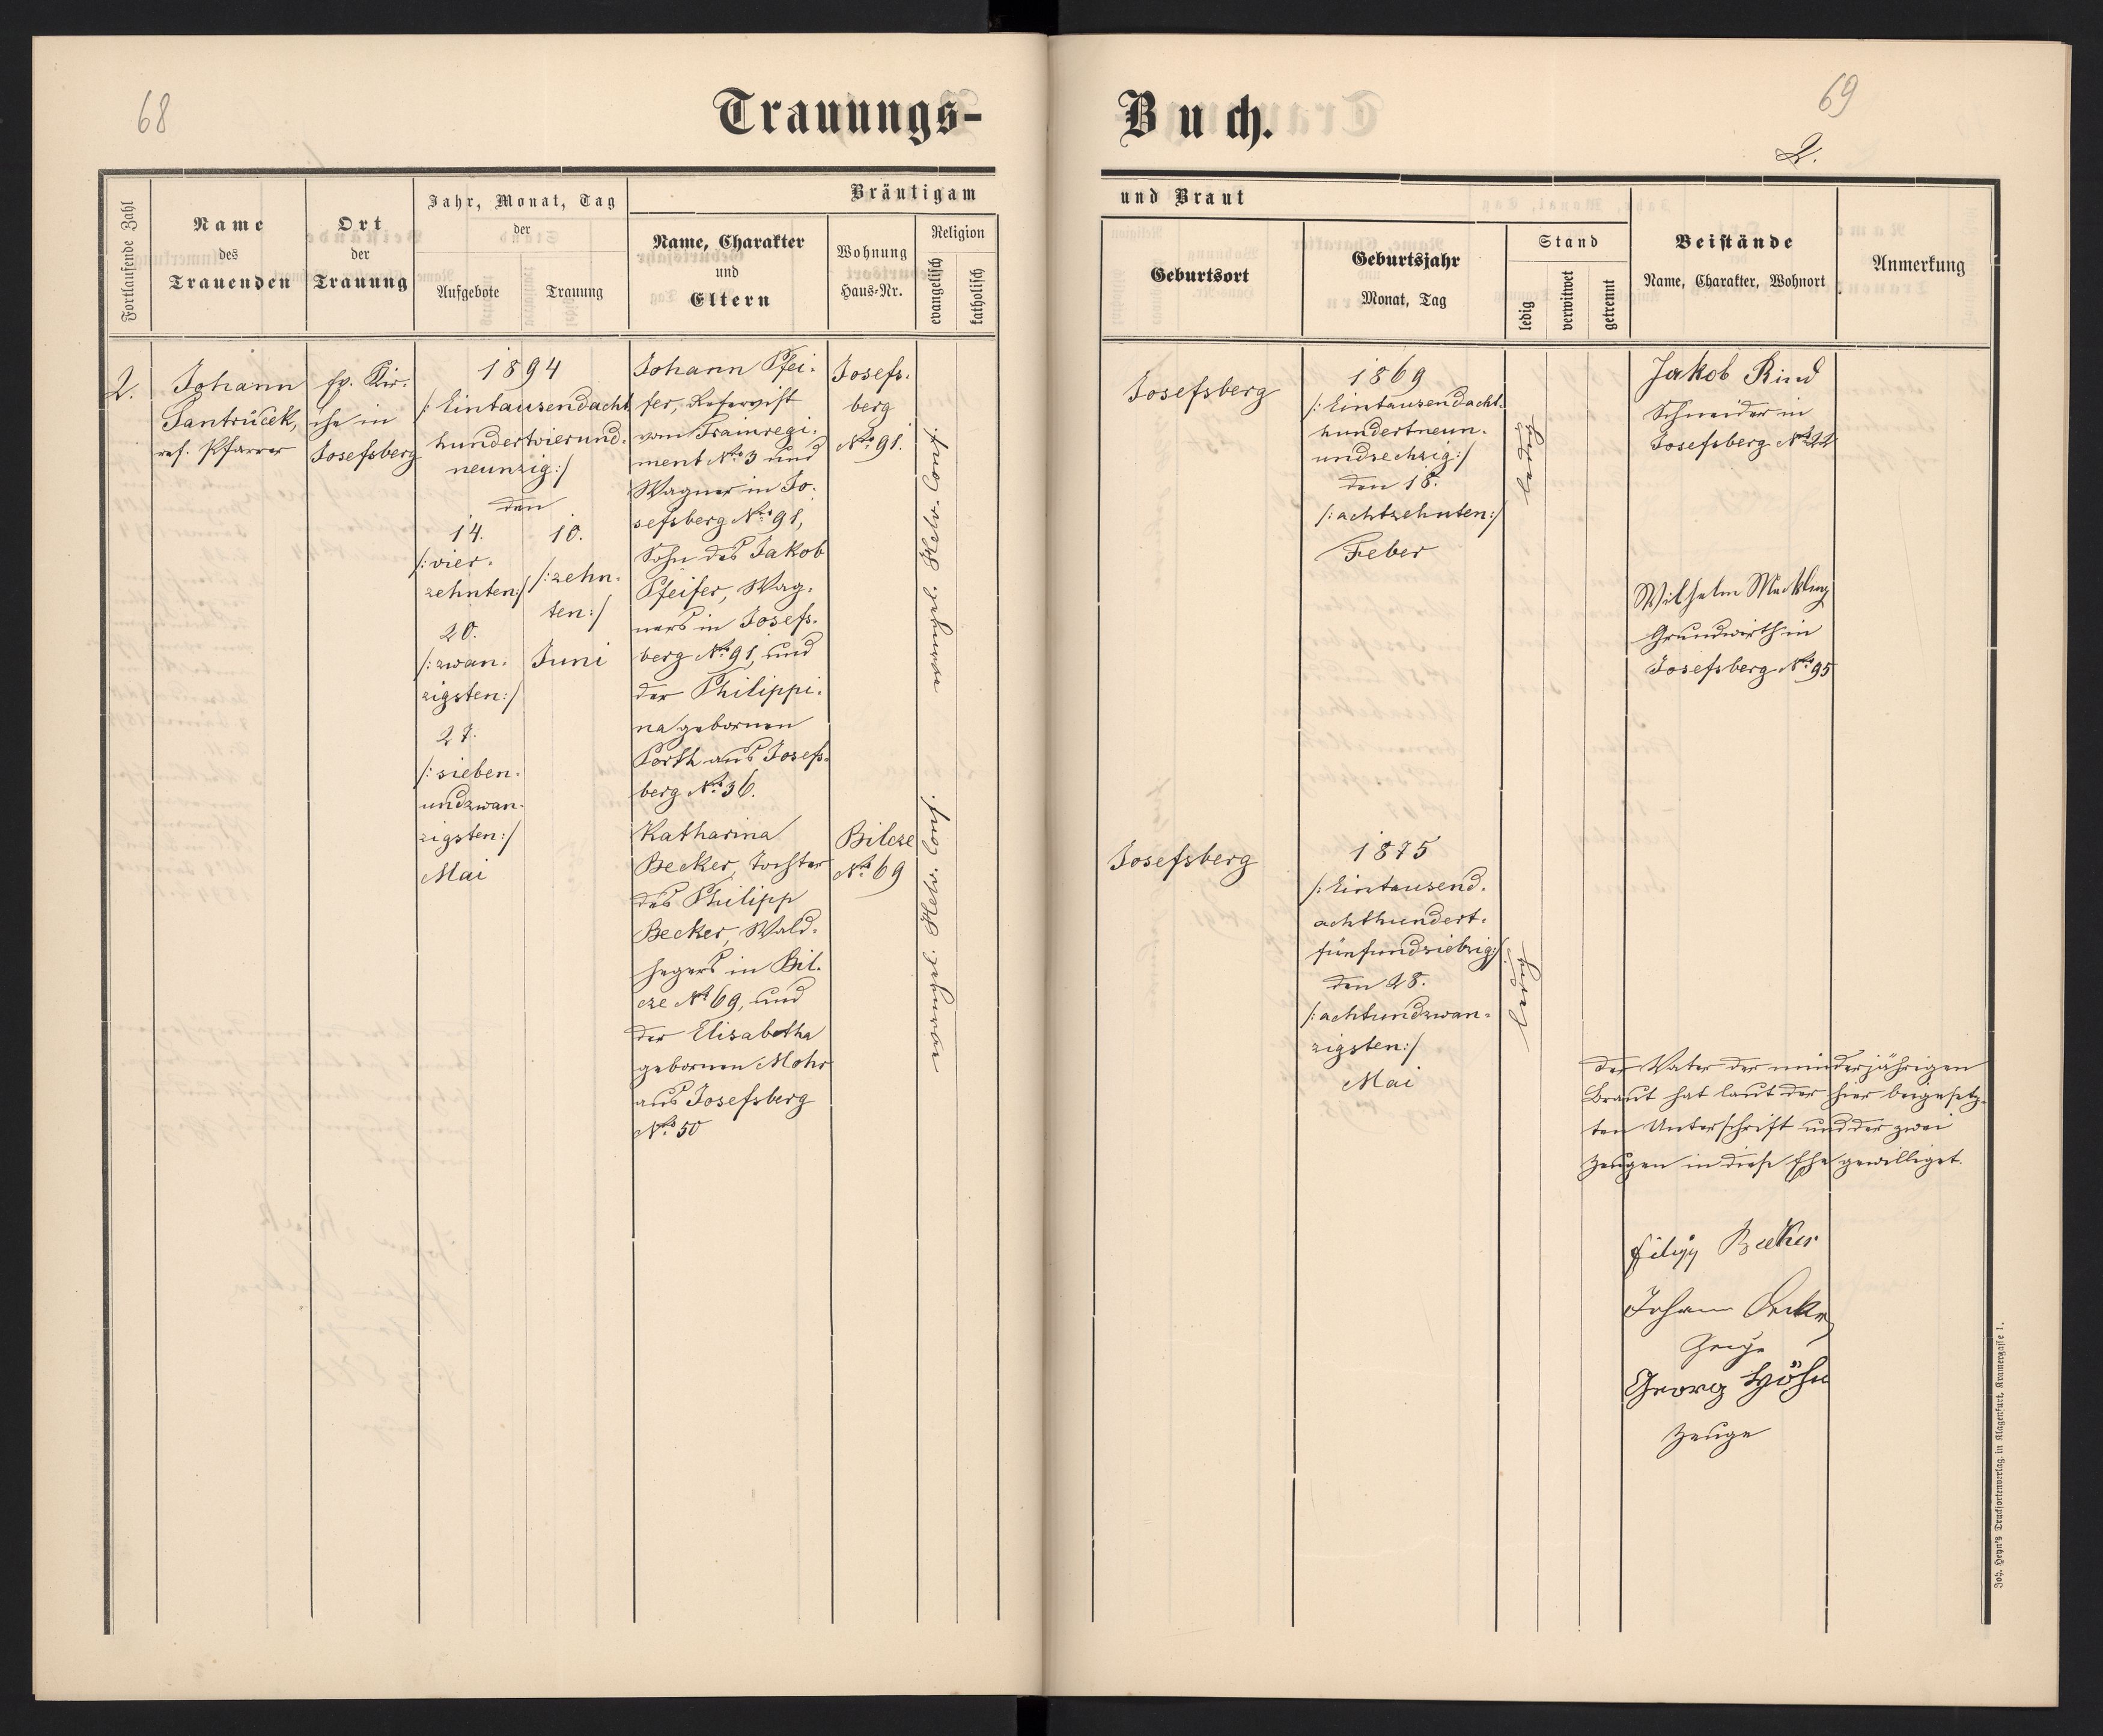 68
69
2.
Trauungs-
Buch.
Fortlaufende Zahl
Name
des
Trauenden
Ort
der
Trauung
Jahr, Monat, Tag
der
Aufgebote
Trauung
Bräutigam
und Braut
Name, Charakter
und
Eltern
Wohnung
Haus-Nr.
Religion
evangelisch
katholisch
Geburtsort
Geburtsjahr
Monat, Tag
Stand
ledig
verwitwet
getrennt
Beistände
Name, Charakter, Wohnort
Anmerkung
2.
Johann
Jantrücek,
ref. Pfarrer
ev. Kir-
che in
Josefsberg
1894
/: Eintausendacht
hundertvierund-
neunzig :/
den
14.
/: vier-
zehnten :/
20.
/: zwan-
zigsten :/
27.
/: sieben-
undzwan-
zigsten :/
Mai
10.
/: zehn-
ten :/
Juni
Johann Pfei-
fer, Reservist
vom Trainregi-
ment No. 3 und
Wagner in Jo-
sefsberg No. 91,
Sohn des Jakob
Pfeifer, Wag-
ners in Josefs-
berg No. 91, und
der Philippi-
na gebornen
Porth aus Josefs-
berg No. 36.
Josefs-
berg
No. 91.
evangel. Helv. Conf.
Josefsberg
1869
/: Eintausendacht-
hundertneun-
undsechzig :/
den 18.
/: achtzehnten :/
Feber
ledig
Jakob Rind
Schneider in
Josefsberg No. 22
Wilhelm Meckling
Grundwirth in
Josefsberg No. 95
Katharina
Becker, Tochter
des Philipp
Becker, Wald-
hegers in Bil-
cze No. 69, und
der Elisabetha
gebornen Mohr
aus Josefsberg
No. 50
Bilcze
No. 69
evangel. Helv. Conf.
Josefsberg
1875
/: Eintausend-
achthundert-
fünfundsiebzig :/
den 28.
/: achtundzwan-
zigsten :/
Mai
ledig
Der Vater der minderjährigen
Braut hat laut der hier beigesetz-
ten Unterschrift und der zwei
Zeugen in diese Ehe gewilliget.
Filipp Becker
Johann
Zeuge
Georg Höhn
Zeuge
Joh. Heyn's Drucksortenverlag in Klagenfurt, Kramergasse 1.